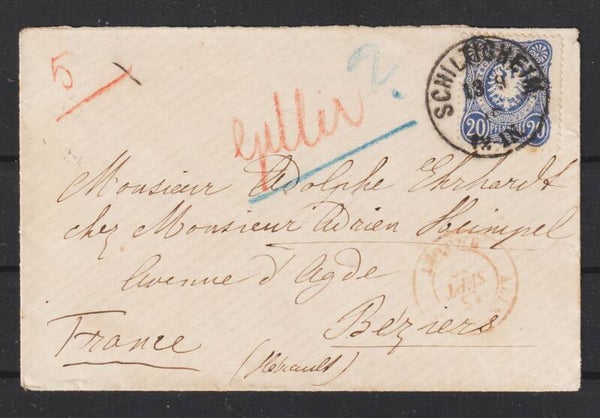 5
2.
SCHILTIGHEIM
20 PFENNIG 20
Monsieur Adolphe Ehrhardt
chez Monsieur Adrien Heimpel
Avenue d'Agde
Béziers
France
(Hérault)